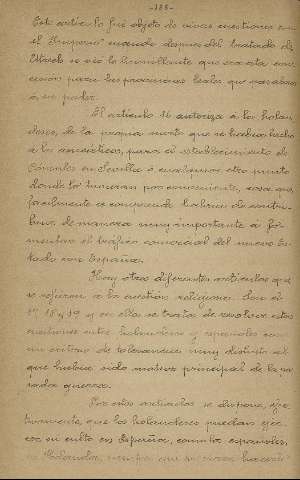 -188-
Este artículo fué objeto de vivas cuestiones en
el Imperio cuando despues del tratado de
Utrech se vió lo humillante que era esta con-
cesión para las provincias leales que pasaban
á su poder.
El artículo 16 autoriza á los holan-
deses, de la propia suerte que se había hecho
á los anseáticos, para el establecimiento de
Cónsules en Sevilla ó cualquiera otro punto
donde lo tuvieran por conveniente, cosa que
facilmente se comprende habría de contri-
buir de manera muy importante á fo-
mentar el tráfico comercial del nuevo Es-
tado con España.
Hay otros diferentes artículos que
se refieren á la cuestión religiosa. Son el
17, 18 y 19 y en ellos se trata de resolver estas
cuestiones entre holandeses y españoles con
un criterio de tolerancia muy distinto del
que había sido motivo principal de la pa-
sada guerra.
Por estos artículos se dispone, efec-
tivamente, que los holandeses puedan ejer-
cer su culto en España, como los españoles
en Holanda, siempre que